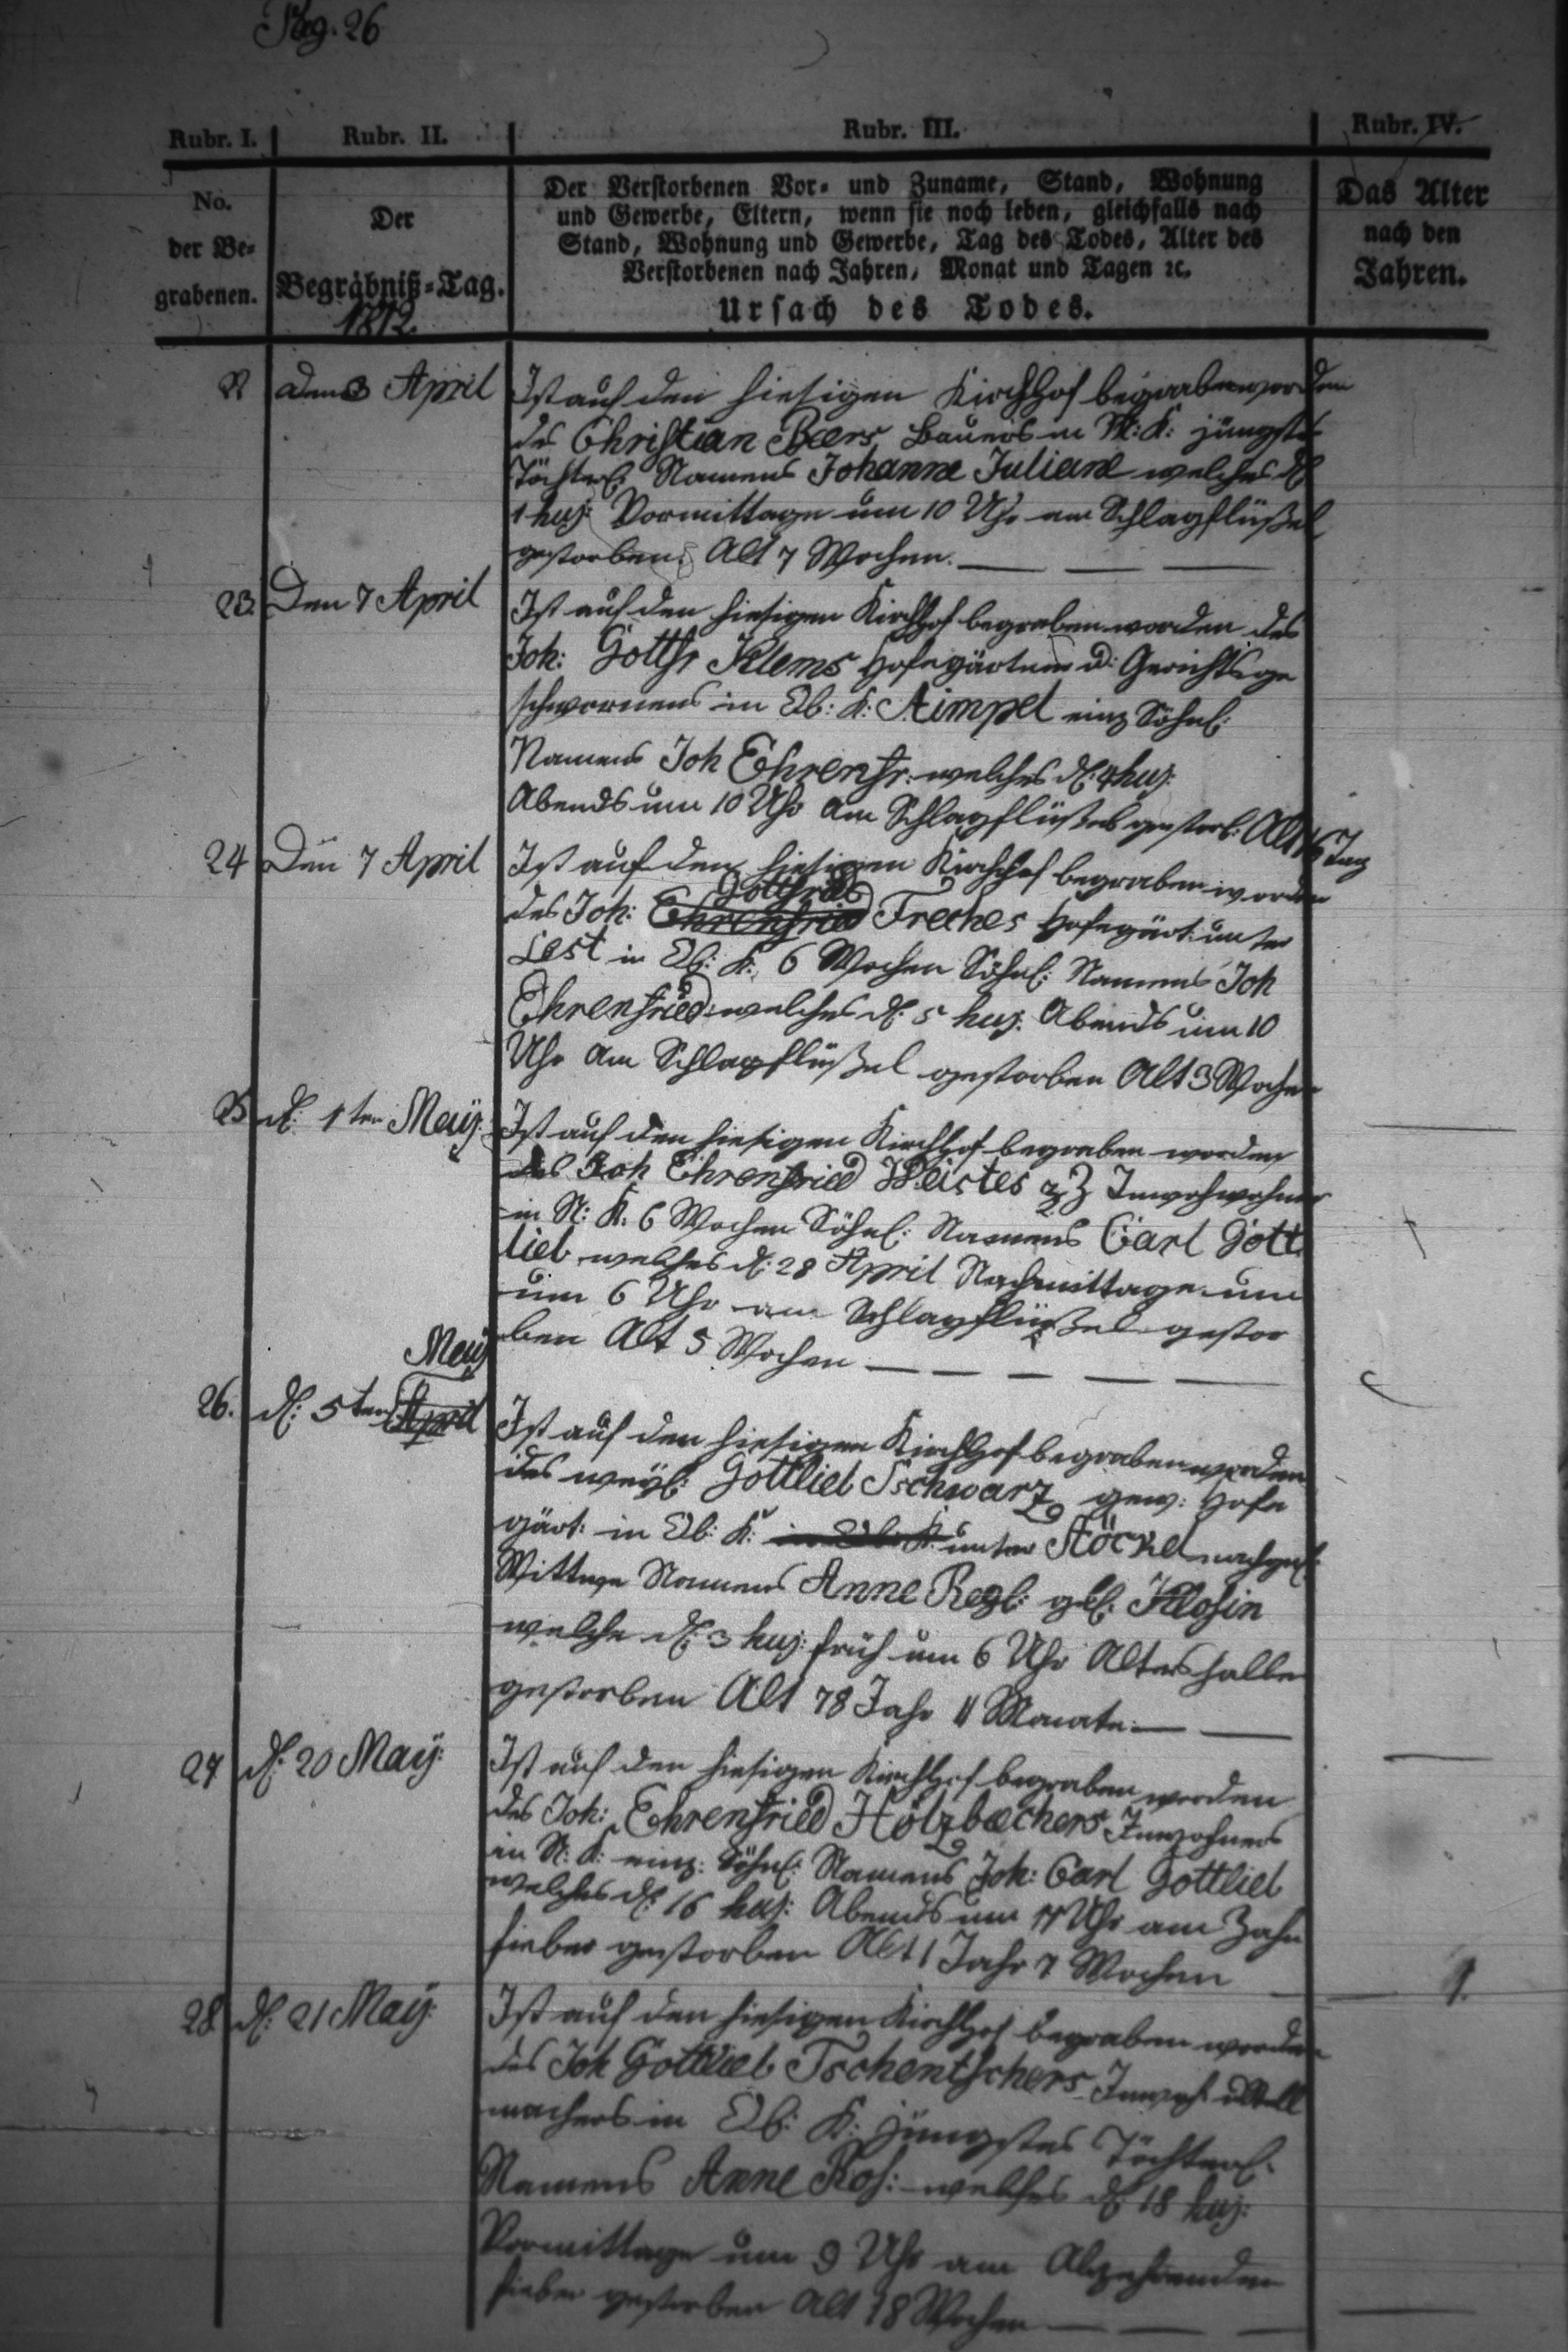 Pag. 26
Rubr. I. Rubr. II. Rubr. III. Rubr. IV.
No. der Be- grabenen.
Der Begräbniß-Tag. 1812.
Der Verstorbenen Vor- und Zuname, Stand, Wohnung
und Gewerbe, Eltern, wenn sie noch leben, gleichfalls nach
Stand, Wohnung und Gewerbe, Tag des Todes, Alter des
Verstorbenen nach Jahren, Monat und Tagen ꝛc.
Ursach des Todes.
Das Alter
nach den
Jahren.
22 den 3 April Ist auf den hiesigen Kirchhof begraben worden
des Christian Beers Bauers in N: K: jüngstes
Töchterl: Namens Johanne Juliane welches d:
1 huj: Vormittage um 10 Uhr am Schlagflüßel
gestorben. Alt 7 Wochen.
23. Den 7 April Ist auf den hiesigen Kirchhof begraben worden des
Joh: Gottfr Klems Hofegärtners u: Gerichtsge
schwornens in Ob: K: einz Söhnl:
Namens Joh Ehrenfr: welches d: 4 huj:
Abends um 10 Uhr am Schlagflüßel gestorb: Alt 16 Tag
24 Den 7 April Ist auf den hiesigen Kirchhof begraben worden
des Joh: Ehrenfried Gottfried Freches Hofegärt: unter
Lest in Ob: K: 6 Wochen Söhnl: Namens Joh
Ehrenfried welches d: 5 huj: Abends um 10
Uhr am Schlagflüßel gestorben Alt 3 Wochen
25 d: 1ten Maÿ: Ist auf den hiesigen Kirchhof begraben worden
des Joh Ehrenfried z Z Inwohwohners
in N: K: 6 Wochen Söhnl: Namens Carl Gott
lieb welches d: 28 April Nachmittage um
um 6 Uhr am Schlagflüßel gestor
ben Alt 5 Wochen
Maÿ
26. d: 5ten April Ist auf den hiesigen Kirchhof begraben worden
des weyl: Gottlieb Tschwarz gew: Hofe
gärt: in Ob: K: in Ob: K: unter Stöckel nachgel:
Wittwe Namens Anne Regl: geb: Klosin
welche d: 3 huj: früh um 6 Uhr Alters halber
gestorben Alt 78 Jahr 11 Monate
27 d: 20 Maÿ: Ist auf den hiesigen Kirchhof begraben worden
des Joh: Ehrenfried Holzbechers Inwohners
in N: K: einz: Söhnl: Namens Joh: Carl Gottlieb
welches d: 16 huj: Abends um 11 Uhr am Zahn
fieber gestorben Alt 1 Jahr 7 Wochen 1.
28 d: 21 Maÿ: Ist auf den hiesigen Kirchhof begraben worden
des Joh Gottlieb Tschentschers Inwoh: u Stell
machers in Ob: K: jüngstes Töchterl:
Namens Anne Ros: welches d: 18 huj:
Vormittage um 9 Uhr am Abzehrenden
fieber gestorben Alt 18 Wochen